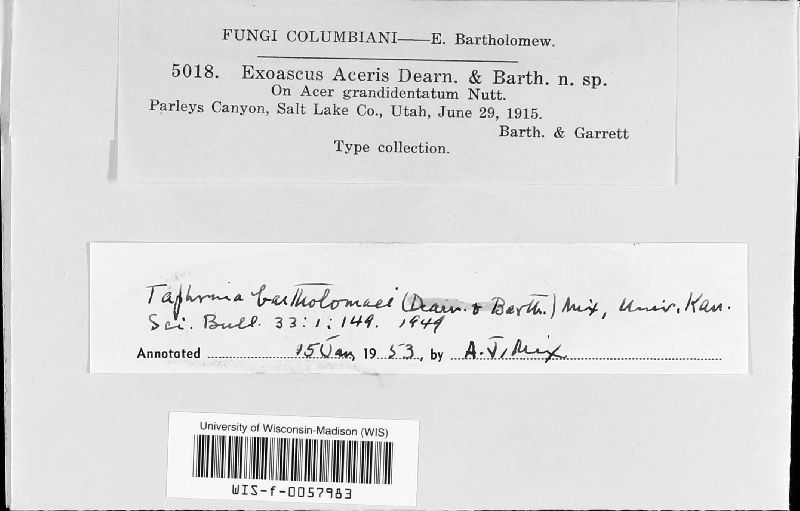 FUNGI COLUMBIANI—E. Bartholomew.
5018. Exoascus Aceris Dearn. & Barth. n. sp.
On Acer grandidentatum Nutt.
Parleys Canyon, Salt Lake Co., Utah, June 29, 1915.
Barth. & Garrett
Type collection.
Taphrina bartholomaei (Dearn. & Barth.) Mix, Univ. Kan.
Sci. Bull. 33:1:149. 1949
Annotated 15 Jan, 1953, by A. J. Mix
University of Wisconsin-Madison (WIS)
WIS-f-0057983